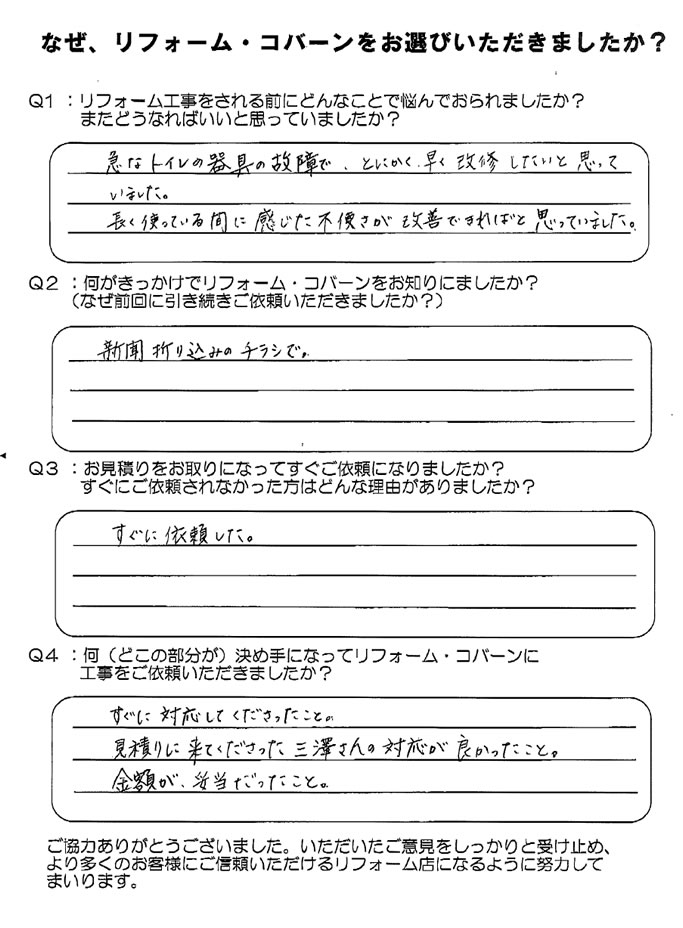 なぜ、リフォーム・コバーンをお選びいただきましたか？
Q1 ：リフォーム工事をされる前にどんなことで悩んでおられましたか？
またどうなればいいと思っていましたか？
急なトイレの器具の故障で、とにかく、早く改修したいと思って
いました。
長く使っている間に感じた不便さが改善できればと思っていました。
Q2 ：何がきっかけでリフォーム・コバーンをお知りにましたか？
（なぜ前回に引き続きご依頼いただきましたか？）
新聞折り込みのチラシで。
Q3 ：お見積りをお取りになってすぐご依頼になりましたか？
すぐにご依頼されなかった方はどんな理由がありましたか？
すぐに依頼した。
Q4 ：何（どこの部分が）決め手になってリフォーム・コバーンに
工事をご依頼いただきましたか？
すぐに対応してくださったこと。
見積りに来てくださった三澤さんの対応が良かったこと。
金額が、妥当だったこと。
ご協力ありがとうございました。いただいたご意見をしっかりと受け止め、
より多くのお客様にご信頼いただけるリフォーム店になるように努力して
まいります。